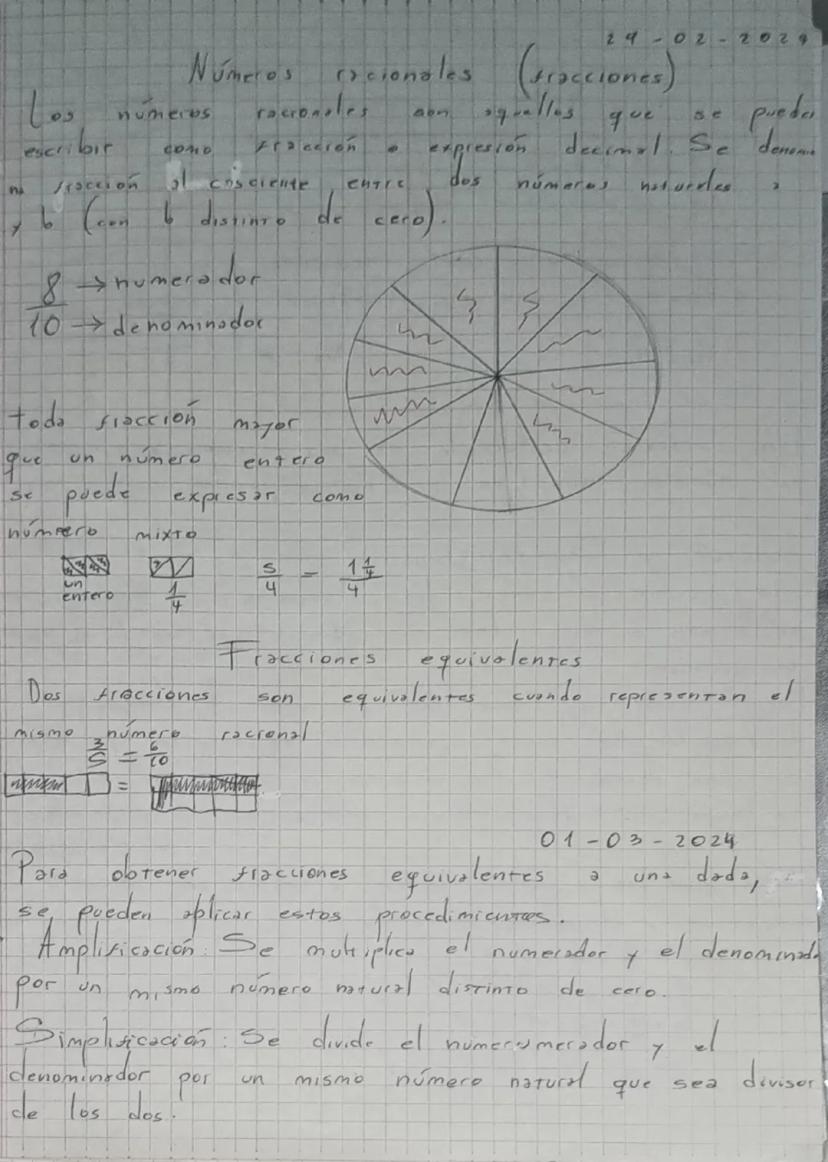 29-02-2024
Números racionales (fracciones)
Los números racionales son aquellos que se pueden
escribir como fracción o expresión decimal. Se denomi
na fracción al cosciente, entre dos números naturales a
y b (con b distinto de cero).
8 → numerador
10 → denominador
toda fracción mayor
que un número entero
se puede expresar como
número mixto
un
entero
1
4
5
4
=
1 1/4
4
Fracciones equivalentes
Dos fracciones son equivalentes cuando representan el
mismo número racional
3/5 = 6/10
=
01-03-2024
Para obtener fracciones equivalentes a una dada,
se pueden aplicar estos procedimientos.
Amplificación: Se multiplica el numerador y el denominad
por un mismo número natural distinto de cero.
Simplificación: Se divide el numerumerador y el
denominador por un mismo número natural que sea divisor
de los dos.